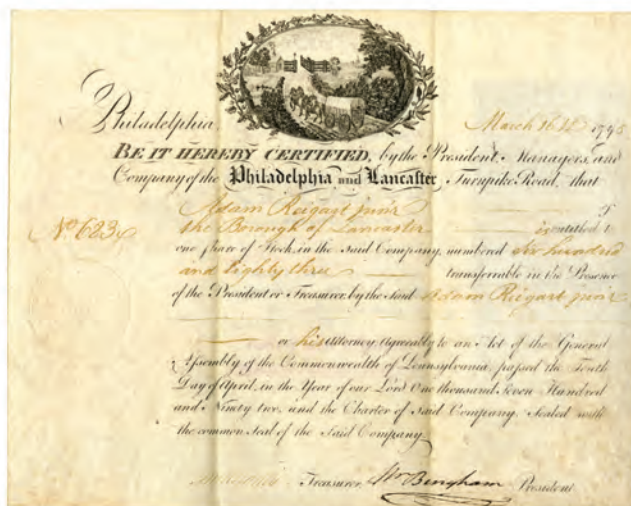 Philadelphia, March 16th 1795
BE IT HEREBY CERTIFIED, by the President, Managers, and
Company of the Philadelphia and Lancaster Turnpike Road, that
Adam Reigart junr of
No 683 the Borough of Lancaster is entitled to
one share of Stock, in the said Company, numbered six hundred
and Eighty three transferrable in the Presence
of the President or Treasurer, by the Said Adam Reigart junr
or his Attorney, Agreeably to an Act of the General
Assembly of the Commonwealth of Pennsylvania, passed the Tenth
Day of April, in the Year of our Lord One thousand Seven Hundred
and Ninety two, and the Charter of Said Company. Sealed with
the common Seal of the Said Company
Treasurer, Wm Bingham President